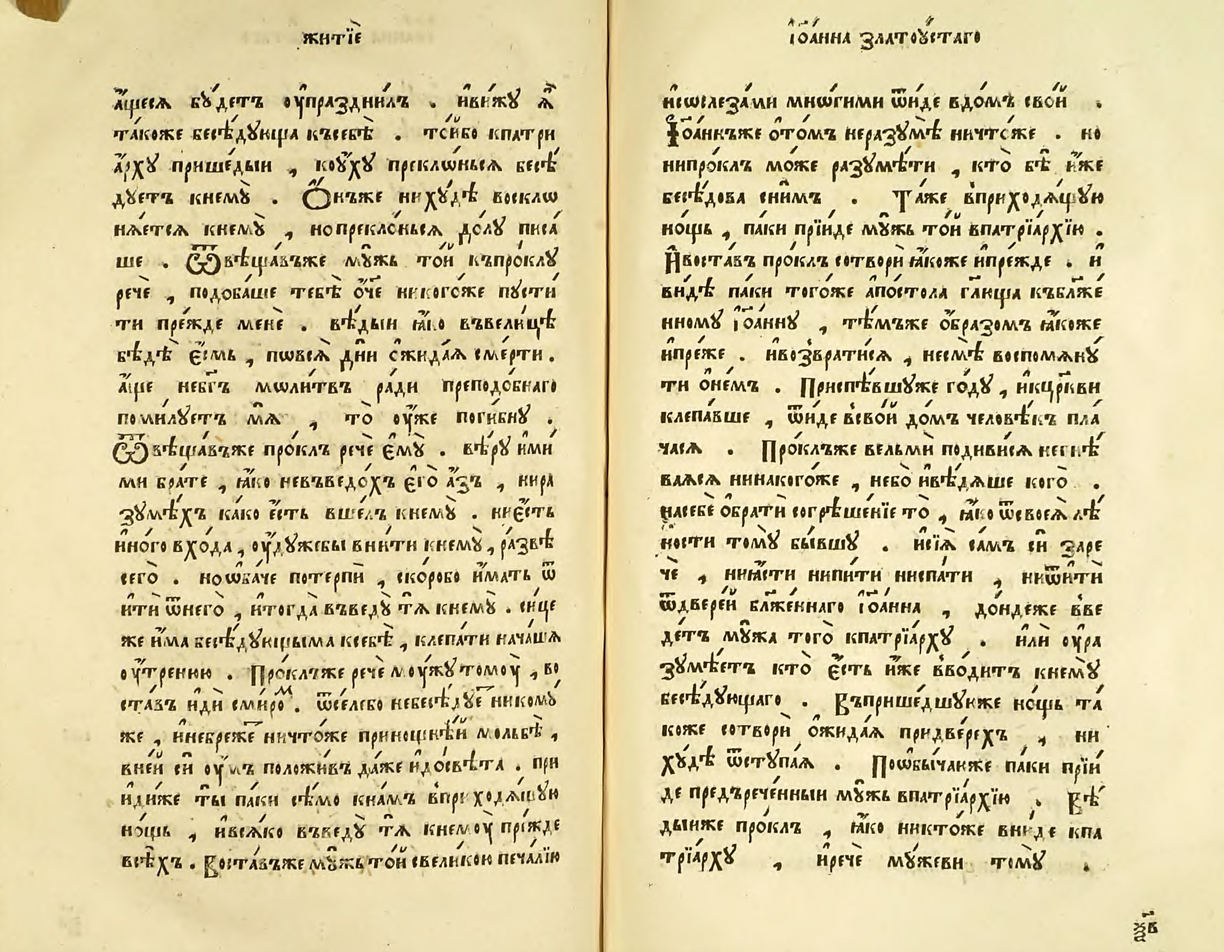 житїѐ
а҆́щесѧ бꙋ́детъ ᲂу҆пра́зднилъ . ивижꙋ ѧ҆̀
тако́же бесѣ́дꙋища къ себѣ̀ . то́йбо кпатри
а҆́рхꙋ прише́дыи , коꙋ́хꙋ преклѡ́ньсѧ бесѣ́
дꙋетъ кнемꙋ̀ . Ѻ҆́нъже нихꙋдѣ̀ восклѡ
нѧ́етсѧ кнемꙋ̀ , но преклоньсѧ до́лꙋ писа́
ше . Ѿвѣща́въже мꙋжь то́й къпроклꙋ
рече̏ , подоба́ше тебѣ̀ о҆́ч҃е никого́же пꙋсти́
ти пре́жде менѐ . вѣ́дыи ꙗ҆́ко въвели́цѣ
бѣдѣ̀ є҆́смь , повсѧ̀ дн҃и ѻ҆жида́ѧ сме́рти .
а҆́ще небг҃ъ мѡли́твъ ра́ди преподо́бнаго
поми́лꙋетъ мѧ̀ , то̀ ᲂу҆́же поги́бнꙋ .
Ѿвѣща́въже про́клъ рече̏ є҆мꙋ̀ . вѣ́рꙋ и҆ми́
ми бра́те , ꙗ҆́ко невъведо́хъ є҆го̀ а҆́зъ , нира
зꙋмѣ́хъ ка́ко є҆́сть вше́лъ кнемꙋ̀ . ниѐсть
и҆но́го вхо́да , ᲂу҆дꙋжебы вни́ти кнемꙋ̀ , ра́звѣ
сего̀ . но ѡ҆ба́че потерпѝ , ско́робо и҆́мать ѿ
ити ѿнего̀ , и҆тогда̀ въведꙋ̀ тѧ̀ кнемꙋ̀ . си́це
же и҆́ма бесѣ́дꙋищыма ксебѣ̀ , клепа́ти нача́шѧ
ᲂу҆́тренюю . Про́клъже рече̏ моꙋжꙋ томоꙋ̀ , во
ста́въ и҆дѝ сми́роⷨ . ѿсе́лебо небесѣ́дꙋеⷮ никомꙋ̀
же , и҆небреже́ⷮ ничто́же приноцнѣ́й мольбѣ̀ ,
вне́й сѝ ᲂу҆́мъ положи́въ да́же и҆досвѣ́та . при
и҆ди́же ты̀ па́ки сѣ́мо кна́мъ вприходѧ́щꙋю
но́щь , и҆всѧ́ко въведꙋ̀ тѧ̀ кнемоꙋ̀ прі́жде
всѣ́хъ . Воста́въже мꙋ́жь то́й свели́кою печа́лїю
і҆ѡа́нна златоꙋ́стаго
и҆сослеза́ми мно́гими ѿи́де вдо́мъ сво́й .
І҆оа́ннъже ото́мъ неразꙋмѣ̀ ничто́же . но
нипро́клъ мо́же разꙋмѣ́ти , кто̀ бѣ̀ и҆́же
бесѣ́дова сни́мъ . Та́же вприходѧ́щꙋю
но́щь , па́ки прїи́де мꙋ́жь то́й впатрїа́рхїю .
И҆воста́въ про́клъ сотворѝ ꙗ҆́коже и҆пре́жде . и҆
ви́дѣ па́ки тогоже а҆по́стола гл҃ища къбл҃же́
нномꙋ і҆оа́ннꙋ , тѣ́мъже о҆́бразомъ ꙗ҆́коже
и҆пре́же . и҆возврати́сѧ , несмѣ̀ воспомѧнꙋ́
ти о҆не́мъ . Приспѣ́вшꙋже го́дꙋ , и҆кцр҃кви
клепа́вше , ѿи́де всво́й до́мъ человѣ́къ пла́
часѧ . Про́клъже вельмѝ подиви́сѧ негнѣ́
ваѧсѧ нинакого́же , небо и҆вѣ́дѧше кого̀ .
насебѐ ѻ҆братѝ согрѣше́нїе то̀ , ꙗ҆́ко ѿсвоеѧ̀ лѣ́
ности томꙋ̀ бы́вшꙋ . и҆сїѧ̀ са́мъ сѝ заре
че̏ , ниꙗ҆́сти нипи́ти ниспа́ти , ниѿи́ти
ѿдвере́й бл҃же́ннаго і҆оа́нна , до́ндеже вве
де́тъ мꙋ́жа того̀ кпатрїа́рхꙋ . и҆лѝ ᲂу҆ра
зꙋмѣ́етъ кто̀ є҆́сть и҆́же вво́дитъ кнемꙋ̀
бесѣ́дꙋющаго . Въприше́дшꙋиже но́щь та́
коже сотворѝ ѻ҆жида́ѧ придве́рехъ , ни
хꙋдѣ̀ ѿстꙋпа́ѧ . Поѡбы́чаиже па́ки прїи́
де предърече́нныи мꙋ́жь впатрїа́рхїю . Вѣ́
дыиже про́клъ , ꙗ҆́ко никто́же вни́де кпа
трїа́рхꙋ , и҆рече̏ мꙋ́жеви томꙋ̀ .